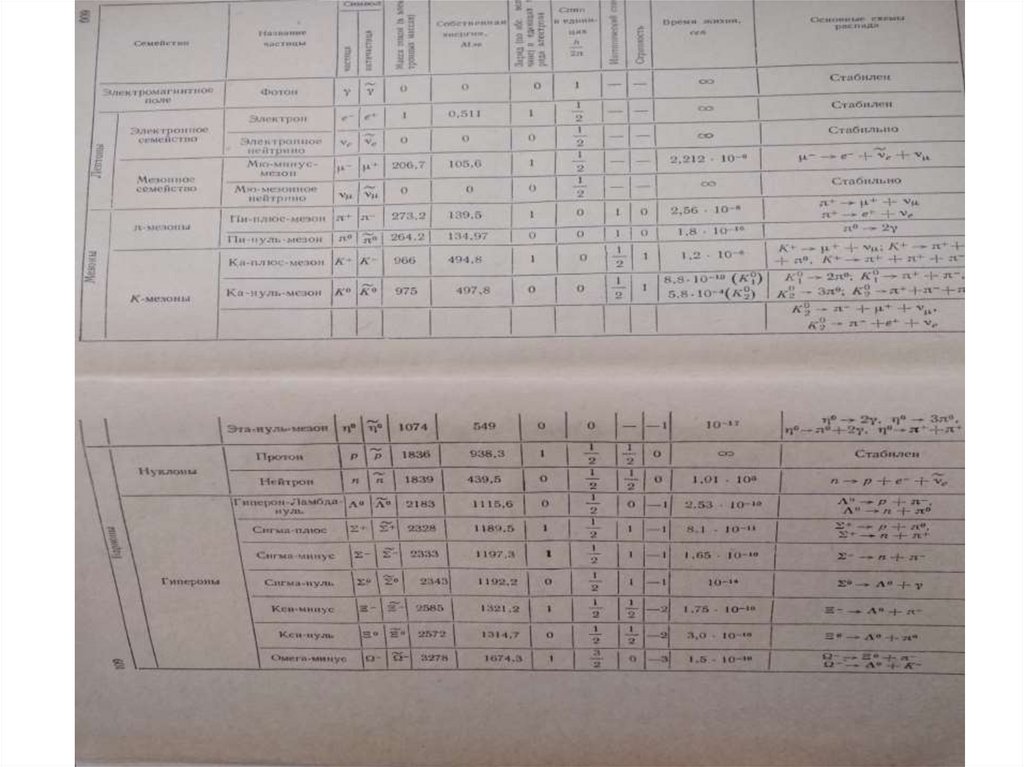 609
Семейство
Название частицы
Символ
частица
античастица
Масса покоя (в
тронных массах)
Собственная энергия, Мэв
Заряд (по абс.
чине) в единицах
ряда электрона
Спин
в едини-
цах
h
2π
Странность
Время жизни, сек
Основные схемы распада
Электромагнитное поле Фотон γ γ̃ 0 0 0 1 — — ∞ Стабилен
Лептоны
Электронное семейство Электрон e⁻ e⁺ 1 0,511 1 1/2 — — ∞ Стабилен
Электронное нейтрино νₑ ν̃ₑ 0 0 0 1/2 — — ∞ Стабильно
Мезонное семейство Мю-минус-мезон μ⁻ μ⁺ 206,7 105,6 1 1/2 — — 2,212 · 10⁻⁶ μ⁻ → e⁻ + ν̃ₑ + νμ
Мю-мезонное нейтрино νμ ν̃μ 0 0 0 1/2 — — ∞ Стабильно
Мезоны
π-мезоны Пи-плюс-мезон π⁺ π⁻ 273,2 139,5 1 0 1 0 2,56 · 10⁻⁸ π⁺ → μ⁺ + νμ
π⁺ → e⁺ + νₑ
Пи-нуль-мезон π⁰ π̃⁰ 264,2 134,97 0 0 1 0 1,8 · 10⁻¹⁶ π⁰ → 2γ
K-мезоны Ка-плюс-мезон K⁺ K⁻ 966 494,8 1 0 1/2 1 1,2 · 10⁻⁸ K⁺ → μ⁺ + νμ; K⁺ → π⁺ +
+ π⁰, K⁺ → π⁺ + π⁺ + π⁻
Ка-нуль-мезон K⁰ K̃⁰ 975 497,8 0 0 1/2 1 8,8·10⁻¹⁰ (K⁰₁) K⁰₁ → 2π⁰; K⁰₁ → π⁺ + π⁻,
5,8·10⁻⁴(K⁰₂) K⁰₂ → 3π⁰; K⁰₂ → π⁺+π⁻+π
K⁰₂ → π⁻ + μ⁺ + νμ,
K⁰₂ → π⁻ + e⁺ + νₑ
Эта-нуль-мезон η⁰ η̃⁰ 1074 549 0 0 — —1 10⁻¹⁷ η⁰ → 2γ, η⁰ → 3π⁰,
η⁰→π⁰+2γ, η⁰→π⁺+π⁺
Барионы
Нуклоны Протон p p̃ 1836 938,3 1 1/2 1/2 0 ∞ Стабилен
Нейтрон n ñ 1839 439,5 0 1/2 1/2 0 1,01 · 10³ n → p + e⁻ + ν̃ₑ
Гипероны Гиперон-Ламбда-нуль Λ⁰ Λ̃⁰ 2183 1115,6 0 1/2 0 —1 2,53 · 10⁻¹⁰ Λ⁰ → p + π⁻,
Λ⁰ → n + π⁰
Сигма-плюс Σ⁺ Σ̃⁺ 2328 1189,5 1 1/2 1 —1 8,1 · 10⁻¹¹ Σ⁺ → p + π⁰,
Σ⁺ → n + π⁺
Сигма-минус Σ⁻ Σ̃⁻ 2333 1197,3 1 1/2 1 —1 1,65 · 10⁻¹⁰ Σ⁻ → n + π⁻
Сигма-нуль Σ⁰ Σ̃⁰ 2343 1192,2 0 1/2 1 —1 10⁻¹⁴ Σ⁰ → Λ⁰ + γ
Кси-минус Ξ⁻ Ξ̃⁻ 2585 1321,2 1 1/2 1/2 —2 1,75 · 10⁻¹⁰ Ξ⁻ → Λ⁰ + π⁻
Кси-нуль Ξ⁰ Ξ̃⁰ 2572 1314,7 0 1/2 1/2 —2 3,0 · 10⁻¹⁰ Ξ⁰ → Λ⁰ + π⁰
Омега-минус Ω⁻ Ω̃⁻ 3278 1674,3 1 3/2 0 —3 1,5 · 10⁻¹⁰ Ω⁻ → Ξ⁰ + π⁻
Ω⁻ → Λ⁰ + K⁻